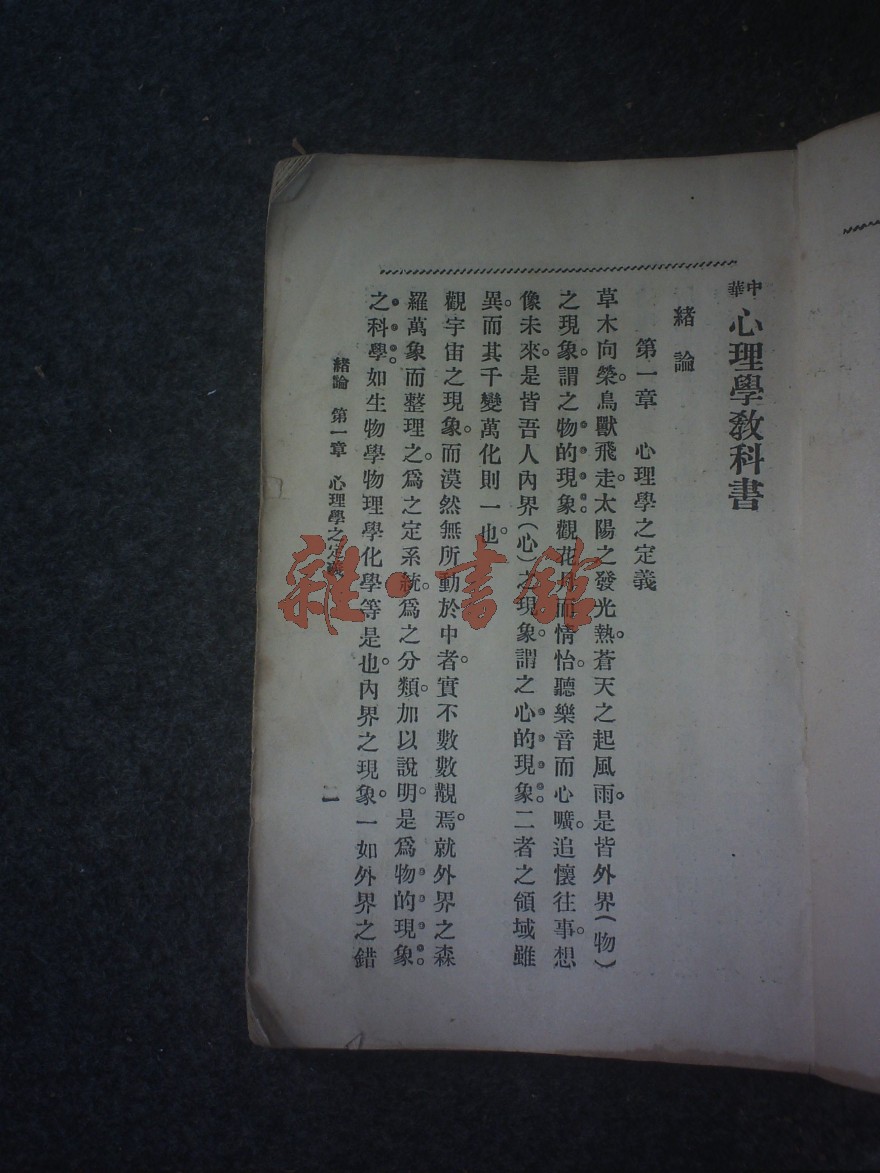 中華 心理學教科書
緒論
第一章 心理學之定義
草木向榮。鳥獸飛走。太陽之發光熱。蒼天之起風雨。是皆外界(物)
之現象。謂之物的現象。觀花月而情怡。聽樂音而心曠。追懷往事。想
像未來。是皆吾人內界(心)之現象。謂之心的現象。二者之領域雖
異。而其千變萬化則一也。
觀宇宙之現象。而漠然無所動於中者。實不數數覯焉。就外界之森
羅萬象而整理之。爲之定系統。爲之分類。加以說明。是爲物的現象
之科學。如生物學物理學化學等是也。內界之現象。一如外界之錯
緒論 第一章 心理學之定義
一
雜·書館